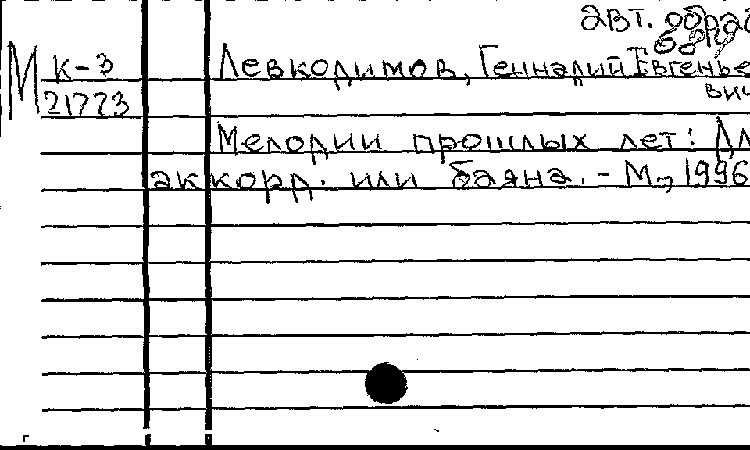 авт. обраб
М К-3 Левкодимов, Геннадий Евгенье
21773 вич
Мелодии прошлых лет: Дл
аккорд. или баяна. - М., 1996